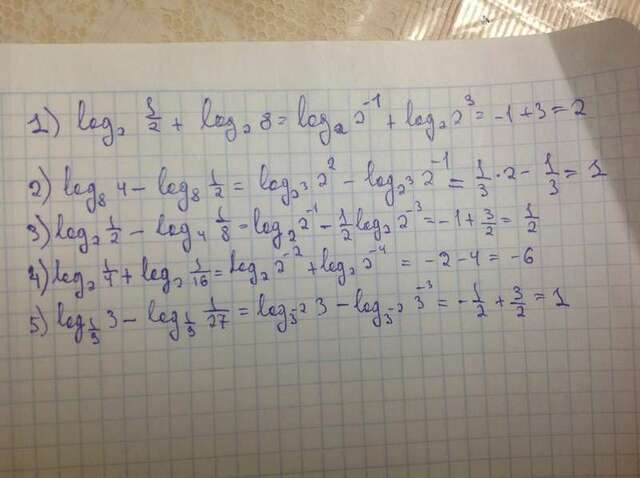 1) log₂ 1/2 + log₂ 8 = log₂ 2⁻¹ + log₂ 2³ = -1 + 3 = 2
2) log₈ 4 - log₈ 1/2 = log₂³ 2² - log₂³ 2⁻¹ = 1/3 · 2 - 1/3 = 1
3) log₂ 1/2 - log₄ 1/8 = log₂ 2⁻¹ - 1/2 log₂ 2⁻³ = -1 + 3/2 = 1/2
4) log₂ 1/4 + log₂ 1/16 = log₂ 2⁻² + log₂ 2⁻⁴ = -2 - 4 = -6
5) log_1/9 3 - log_1/9 1/27 = log_3⁻² 3 - log_3⁻² 3⁻³ = -1/2 + 3/2 = 1